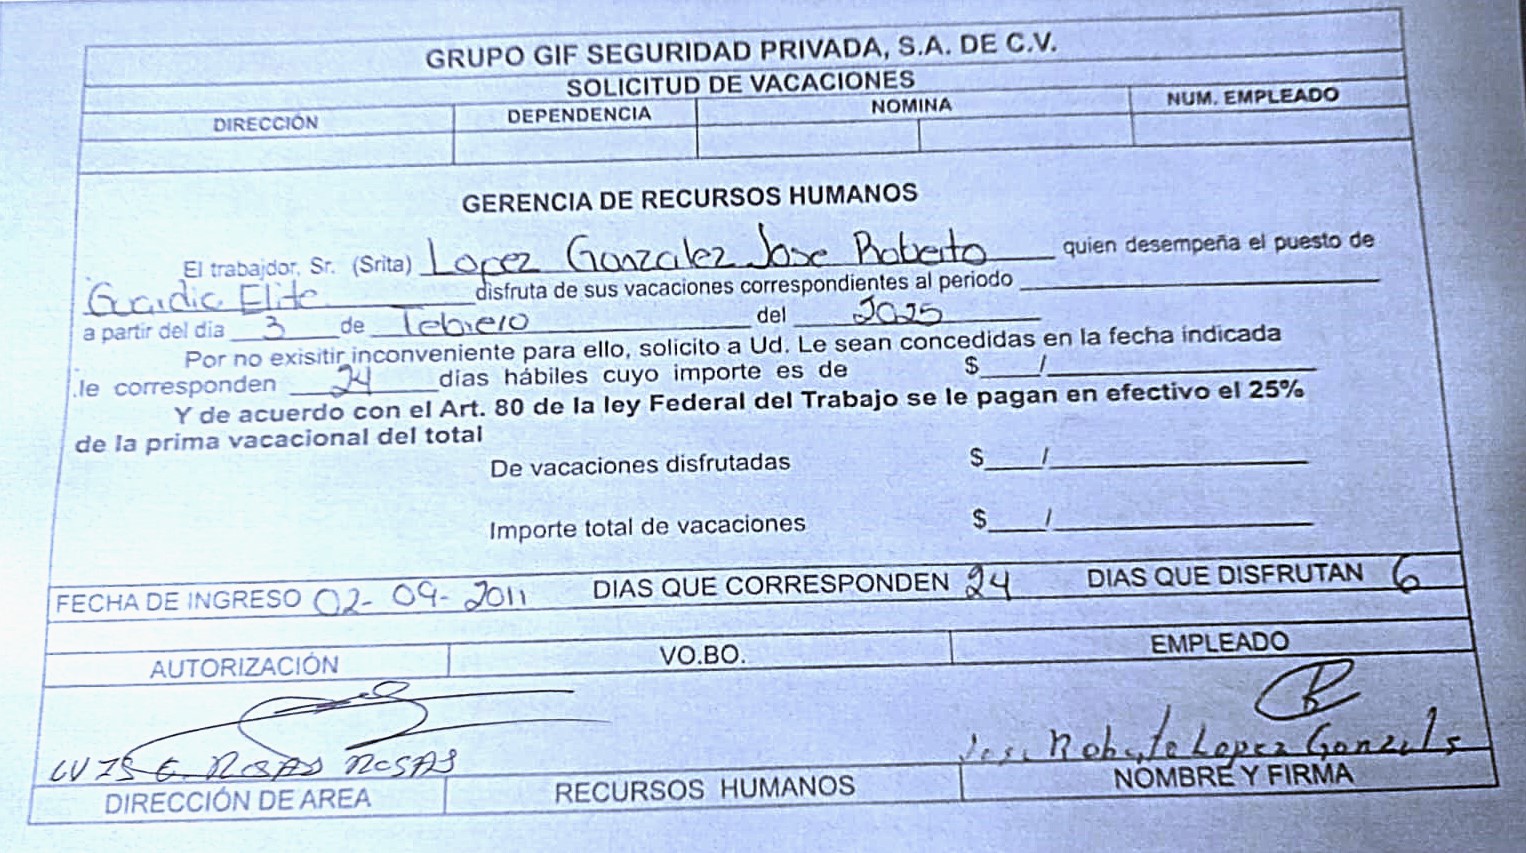 GRUPO GIF SEGURIDAD PRIVADA, S.A. DE C.V.
SOLICITUD DE VACACIONES
DIRECCIÓN DEPENDENCIA NOMINA NUM. EMPLEADO
GERENCIA DE RECURSOS HUMANOS
El trabajdor, Sr. (Srita) Lopez Gonzalez Jose Roberto quien desempeña el puesto de
Guardia Elite disfruta de sus vacaciones correspondientes al periodo
a partir del día 3 de febrero del 2025
Por no exisitir inconveniente para ello, solicito a Ud. Le sean concedidas en la fecha indicada
.le corresponden 24 días hábiles cuyo importe es de $ /
Y de acuerdo con el Art. 80 de la ley Federal del Trabajo se le pagan en efectivo el 25%
de la prima vacacional del total
De vacaciones disfrutadas $ /
Importe total de vacaciones $ /
FECHA DE INGRESO 02-09-2011 DIAS QUE CORRESPONDEN 24 DIAS QUE DISFRUTAN 6
AUTORIZACIÓN VO.BO. EMPLEADO
LUIS G. ROSAS ROSAS Jose Roberto Lopez Gonzalz
DIRECCIÓN DE AREA RECURSOS HUMANOS NOMBRE Y FIRMA